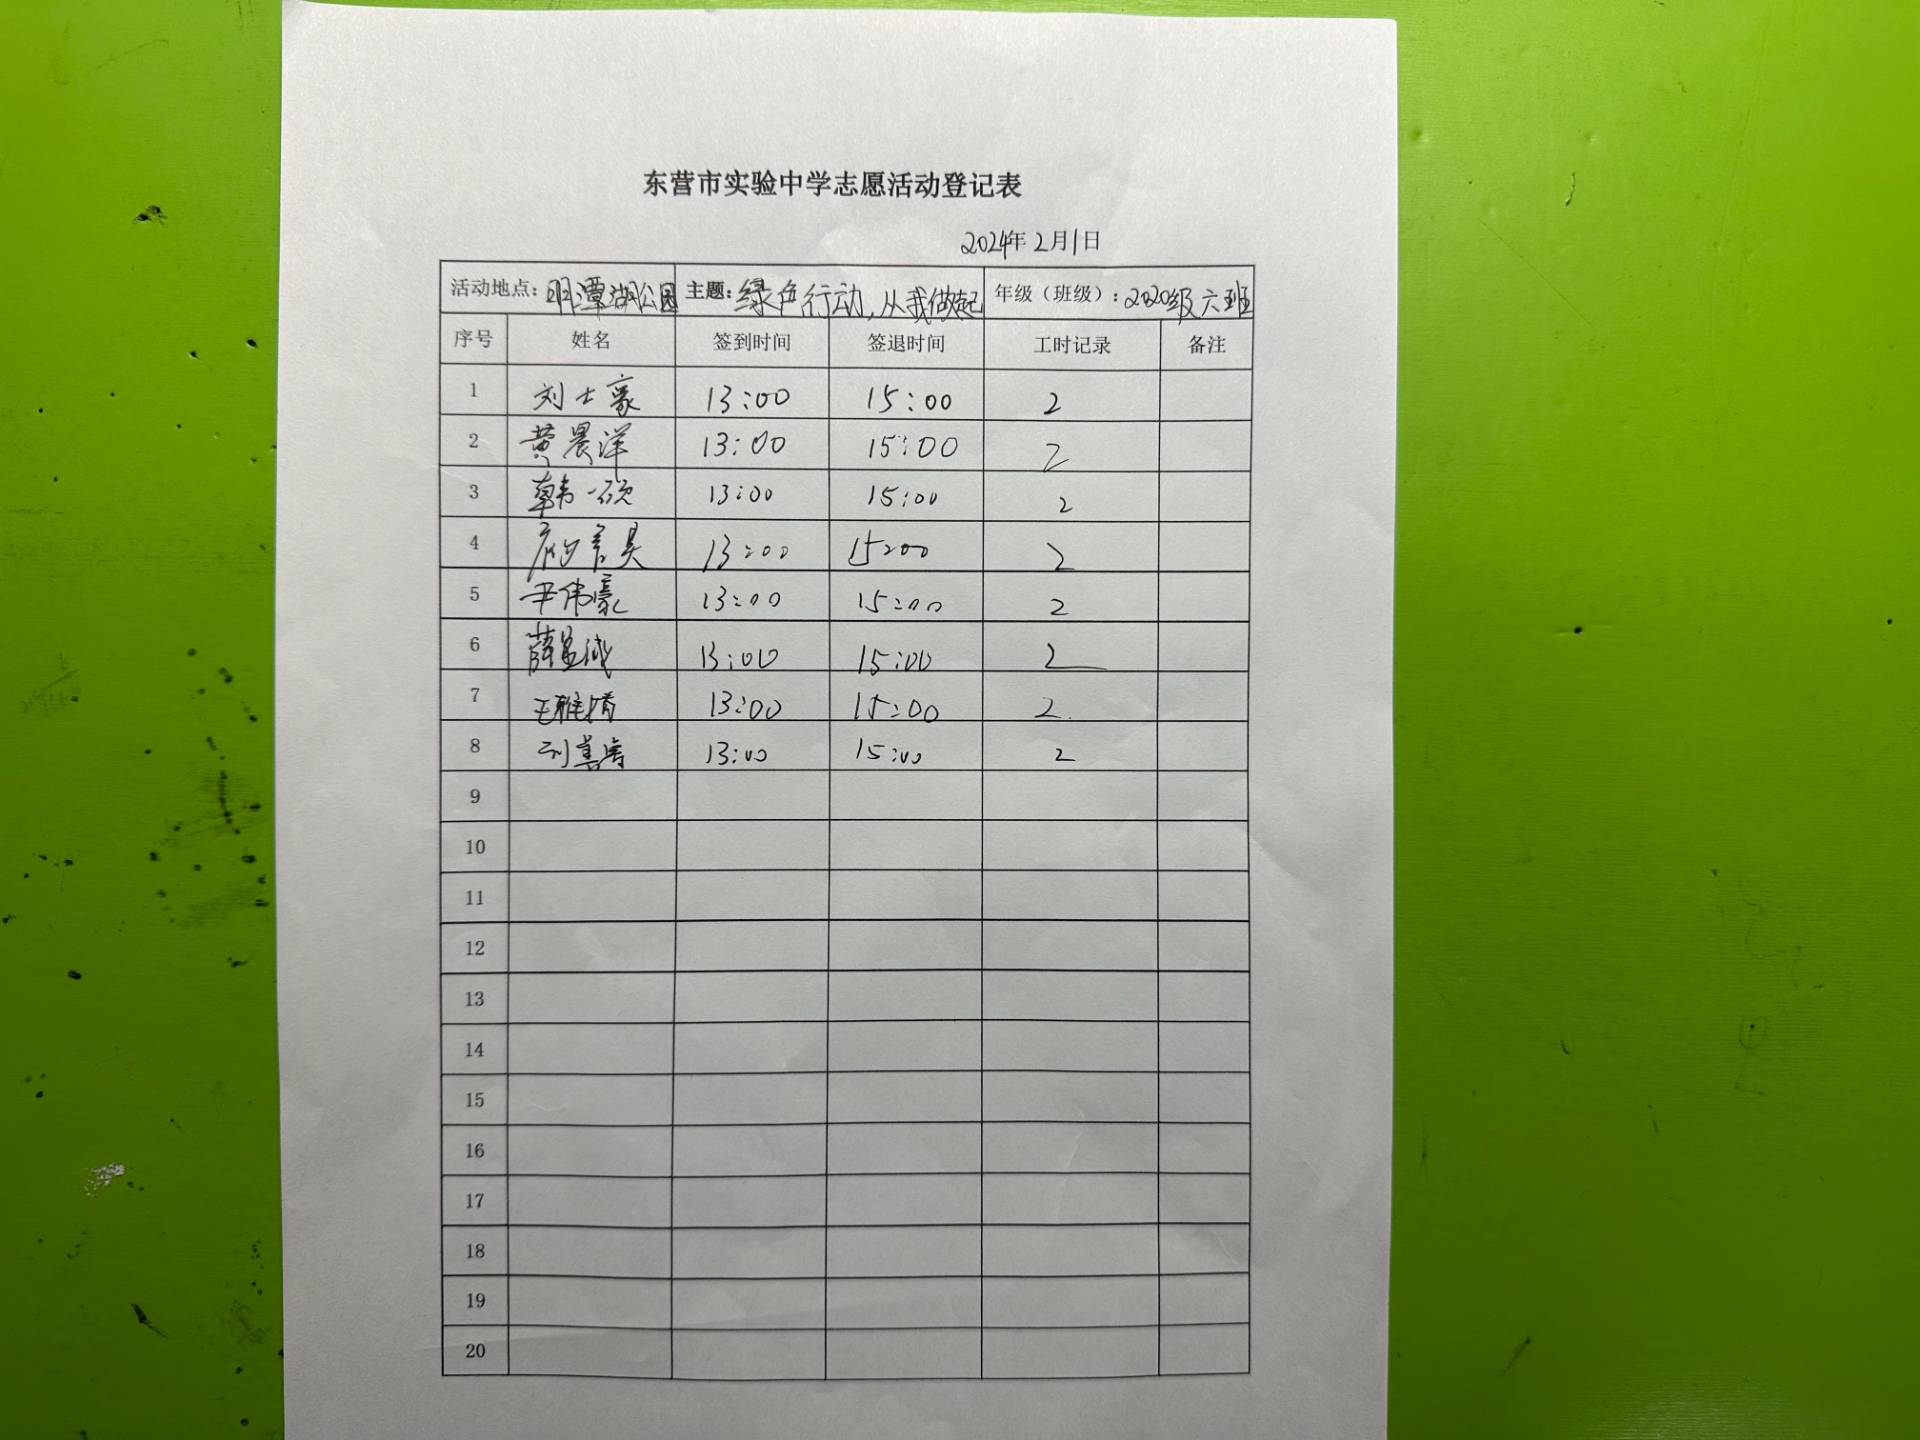 东营市实验中学志愿活动登记表
2024年2月1日
活动地点：明潭湖公园 主题：绿色行动,从我做起 年级（班级）：2020级六班
序号 姓名 签到时间 签退时间 工时记录 备注
1 刘士豪 13:00 15:00 2
2 黄晨洋 13:00 15:00 2
3 韩一硕 13:00 15:00 2
4 13:00 15:00 2
5 尹伟豪 13:00 15:00 2
6 薛孟诚 13:00 15:00 2
7 王雅婧 13:00 15:00 2
8 13:00 15:00 2
9
10
11
12
13
14
15
16
17
18
19
20